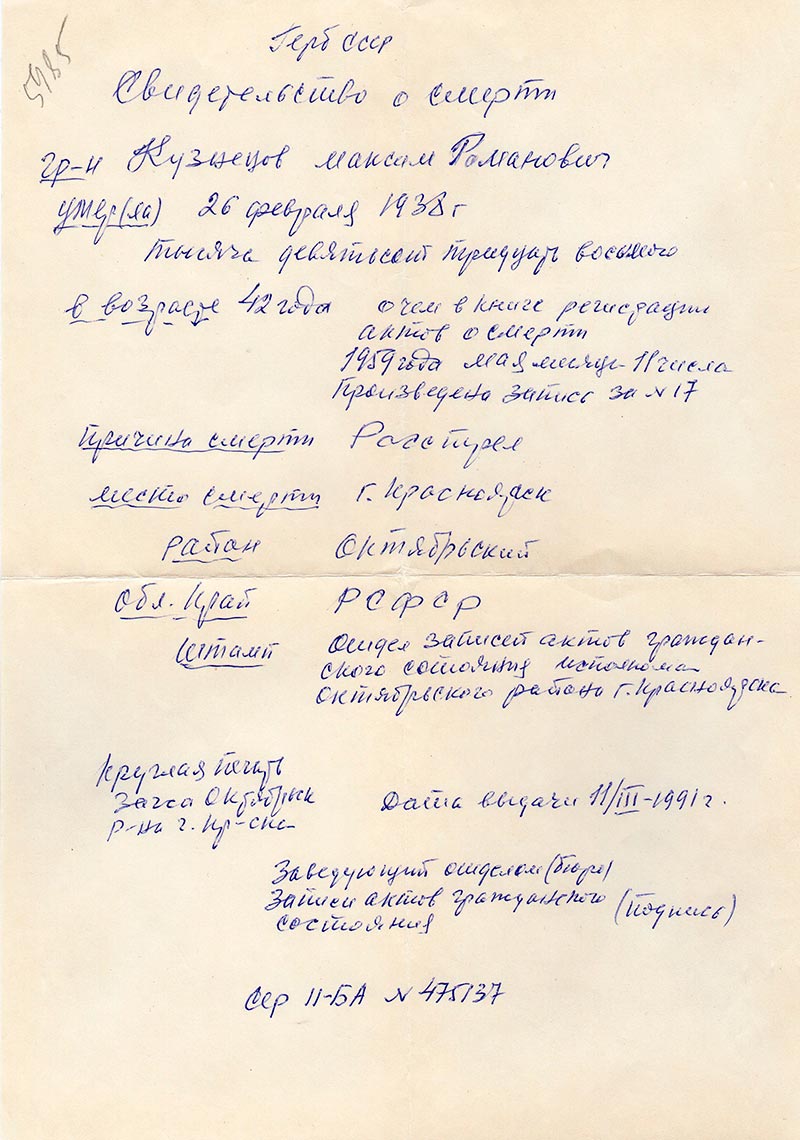 5985
Герб ссср
Свидетельство о смерти
гр-н Кузнецов Максим Романович
умер(ла) 26 февраля 1938 г
тысяча девятьсот тридцать восьмого
в возрасте 42 года
о чем в книге регистрации
актов о смерти
1959 года мая месяца 11 числа
Произведена запись за № 17
Причина смерти Расстрел
место смерти г. Красноярск
район Октябрьский
Обл. Край РСФСР
Штамп
Отдел записей актов граждан-
ского состояния исполкома
октябрьского района г. Красноярска
Круглая печать
Загса Октябрьск
р-на г. Кр-ска
Дата выдачи 11/III-1991 г.
Заведующий отделом (бюро)
Записи актов гражданского
состояния
(Подпись)
Сер II-БА № 475137